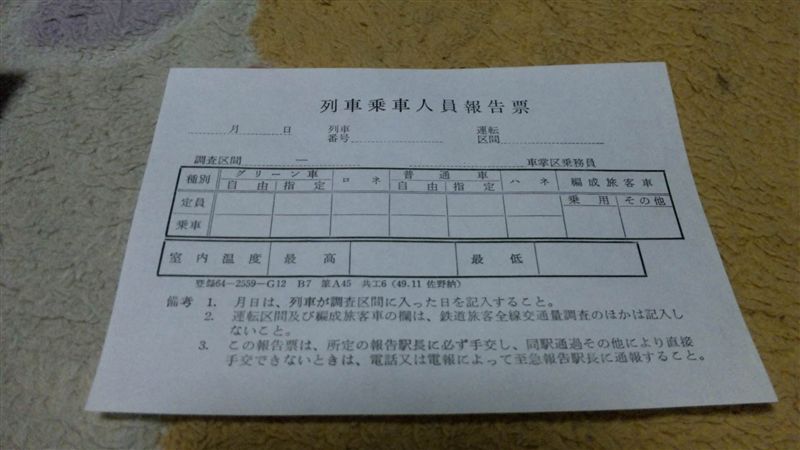 列車乗車人員報告票
月 日 列車番号 運転区間
調査区間 ー 車掌区乗務員
種別 グリーン車 ロネ 普通車 ハネ 編成旅客車
自由 指定 自由 指定 乗用 その他
定員
乗車
室内温度 最高 最低
登録64-2559-G12 B7 薬A45 共工6 (49.11 佐野納)
備考 1. 月日は、列車が調査区間に入った日を記入すること。
2. 運転区間及び編成旅客車の欄は、鉄道旅客全線交通量調査のほかは記入し
ないこと。
3. この報告票は、所定の報告駅長に必ず手交し、同駅通過その他により直接
手交できないときは、電話又は電報によって至急報告駅長に通報すること。